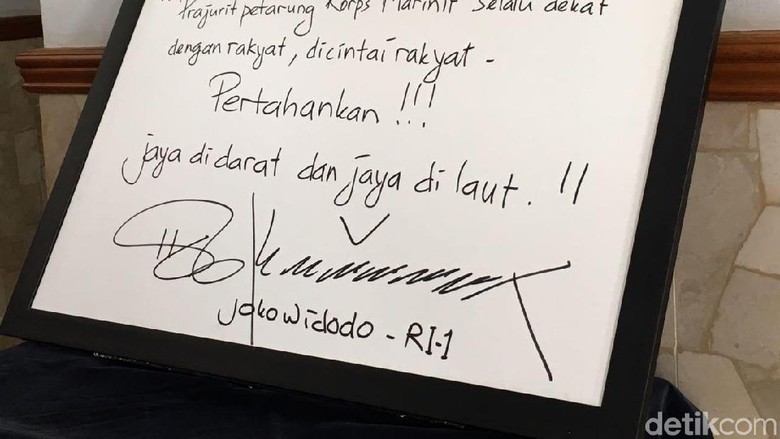 prajurit petarung Korps Marinir selalu dekat
dengan rakyat, dicintai rakyat -
Pertahankan !!!
jaya di darat dan jaya di laut. !!
Joko Widodo - RI-1
detikcom